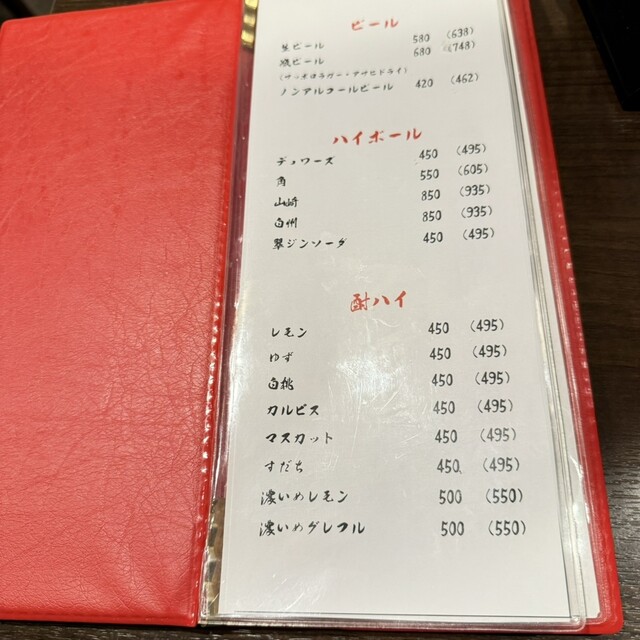 ビール
生ビール 580 (638)
瓶ビール 680 (748)
(サッポロラガー・アサヒドライ)
ノンアルコールビール 420 (462)
ハイボール
デュワーズ 450 (495)
角 550 (605)
山崎 850 (935)
白州 850 (935)
翠ジンソーダ 450 (495)
酎ハイ
レモン 450 (495)
ゆず 450 (495)
白桃 450 (495)
カルピス 450 (495)
マスカット 450 (495)
すだち 450 (495)
濃いめレモン 500 (550)
濃いめグレフル 500 (550)